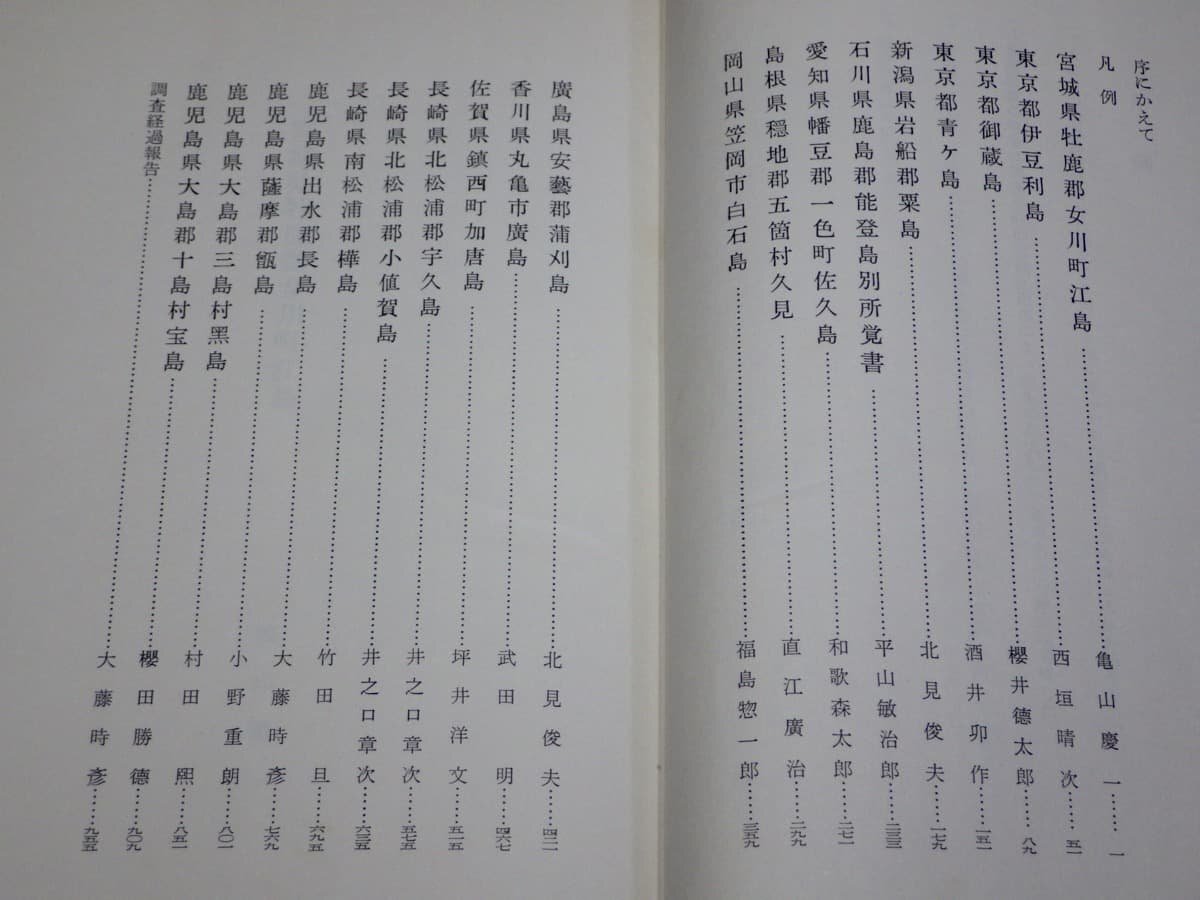 序にかえて
凡例
宮城県牡鹿郡女川町江島……亀山慶一……一
東京都伊豆利島……西垣晴次……五一
東京都御蔵島……櫻井德太郎……八九
東京都青ヶ島……酒井卯作……一五一
新潟県岩船郡粟島……北見俊夫……一七九
石川県鹿島郡能登島別所覚書……平山敏治郎……二三三
愛知県幡豆郡一色町佐久島……和歌森太郎……二七一
島根県穩地郡五箇村久見……直江廣治……二九九
岡山県笠岡市白石島……福島惣一郎……三五九
廣島県安藝郡蒲刈島……北見俊夫……四二一
香川県丸亀市廣島……武田明……四六七
佐賀県鎮西町加唐島……坪井洋文……五一五
長崎県北松浦郡宇久島……井之口章次……五七五
長崎県北松浦郡小値賀島……井之口章次……六三五
長崎県南松浦郡樺島……竹田旦……六九五
鹿児島県出水郡長島……大藤時彥……七六九
鹿児島県薩摩郡甑島……小野重朗……八〇一
鹿児島県大島郡三島村黑島……村田熙……八五一
鹿児島県大島郡十島村宝島……櫻田勝德……九〇九
調査経過報告……大藤時彥……九五五